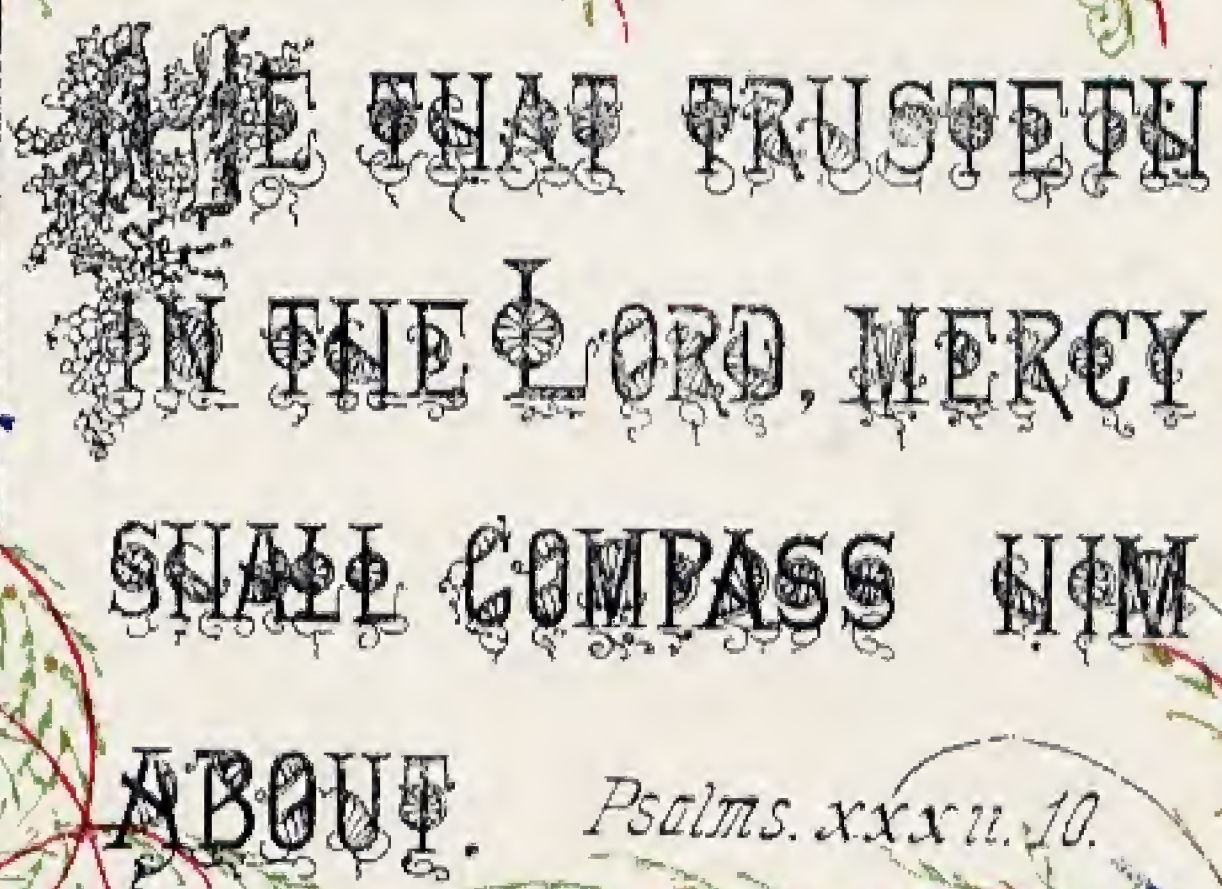 HE THAT TRUSTETH
IN THE LORD, MERCY
SHALL COMPASS HIM
ABOUT. Psalms. xxxii. 10.